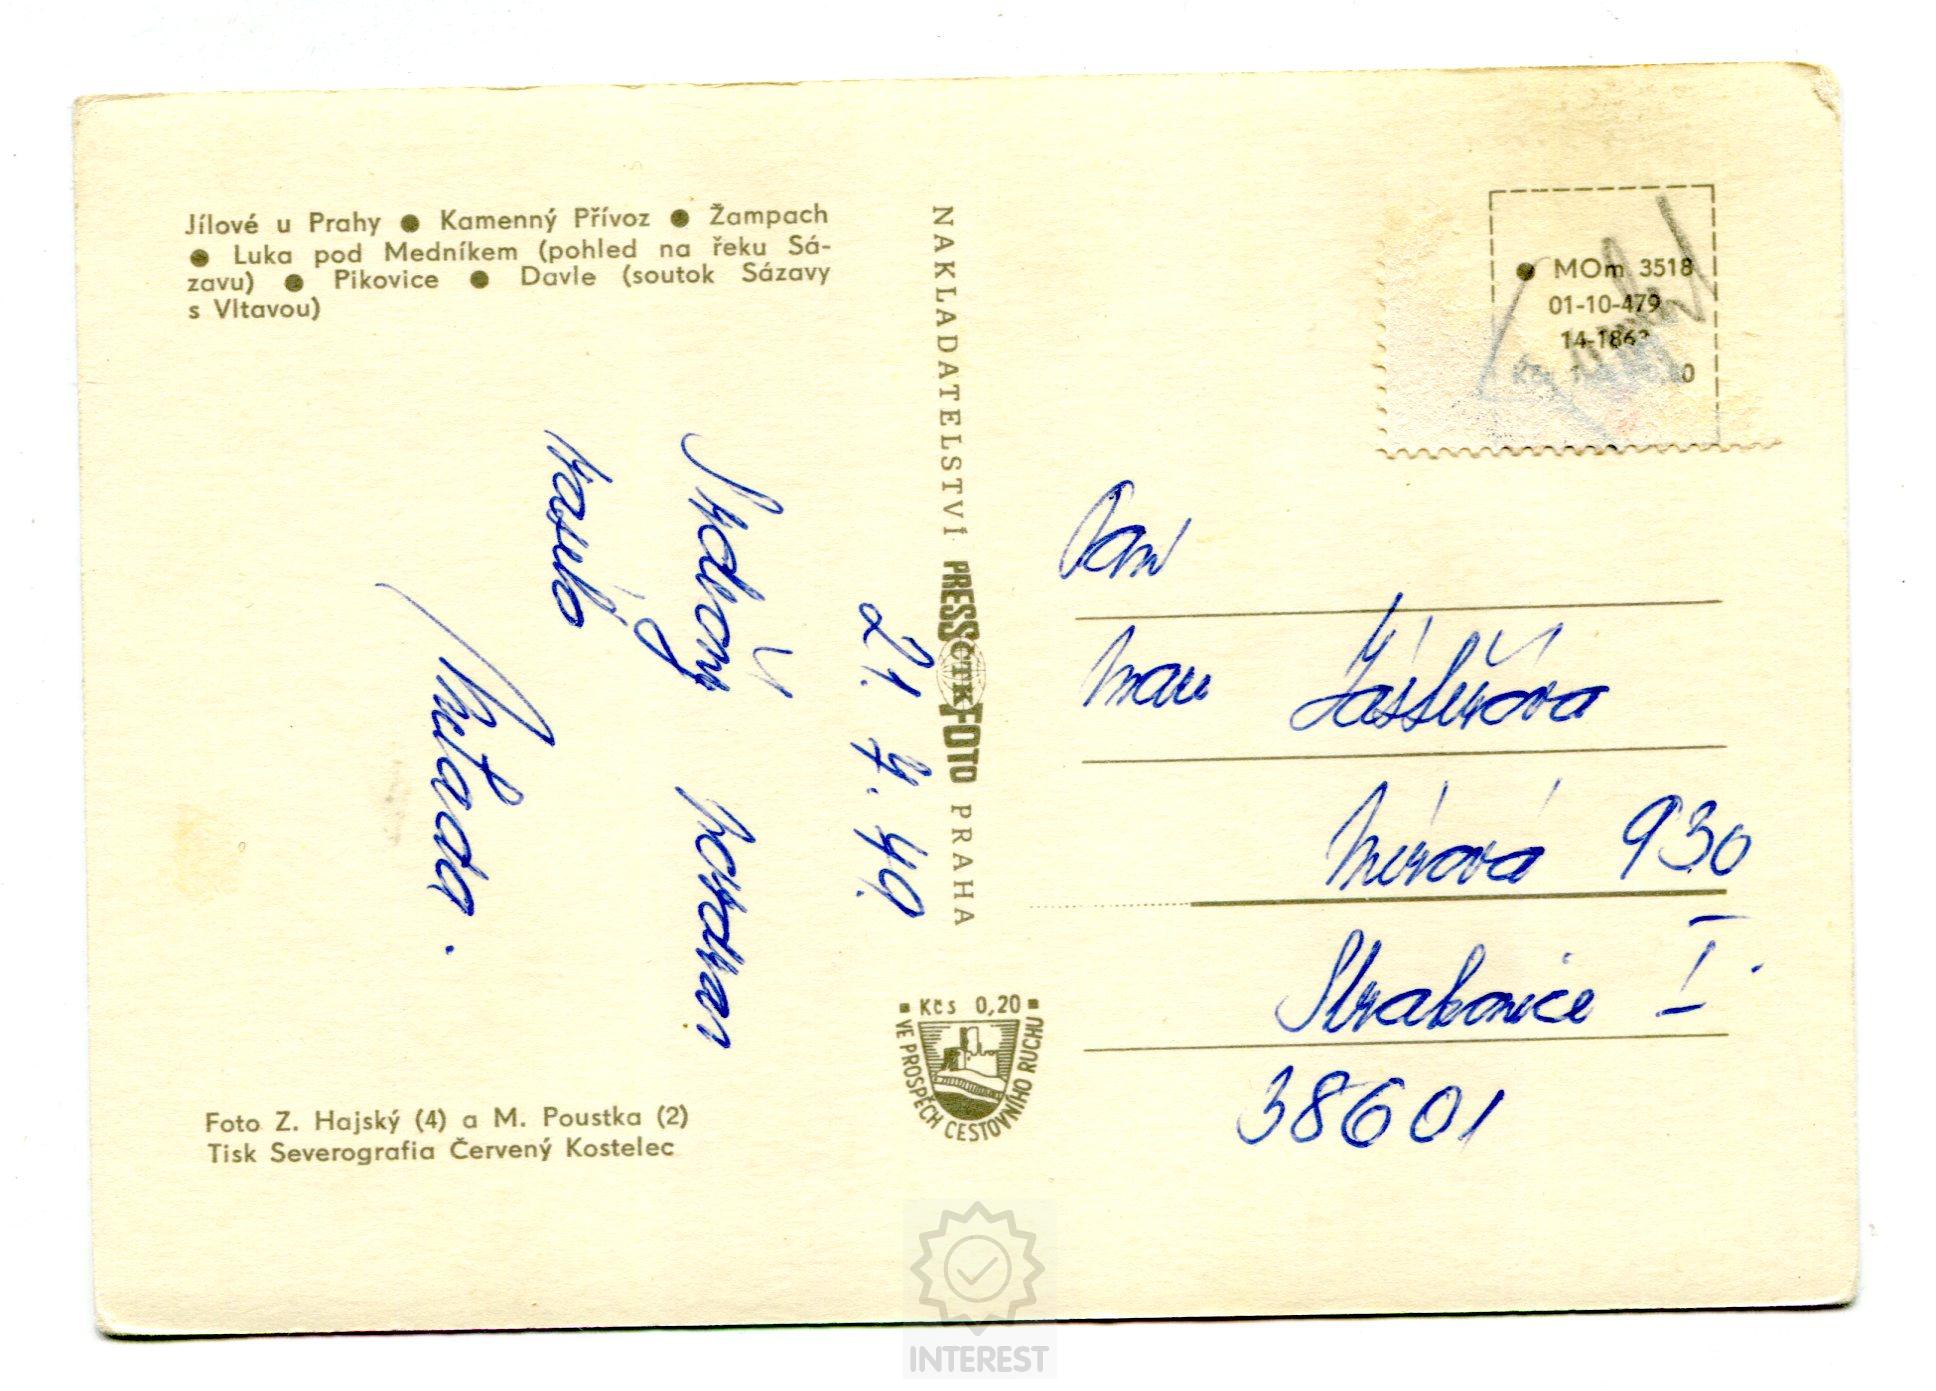 Jílové u Prahy ● Kamenný Přívoz ● Žampach
● Luka pod Medníkem (pohled na řeku Sá-
zavu) ● Pikovice ● Davle (soutok Sázavy
s Vltavou)
21. 7. 79.
posílá
Foto Z. Hajský (4) a M. Poustka (2)
Tisk Severografia Červený Kostelec
NAKLADATELSTVÍ PRESSFOTO PRAHA
ČTK
Kčs 0,20
VE PROSPĚCH CESTOVNÍHO RUCHU
● MOm 3518
01-10-479
Paní
Mírová 930
Strakonice I.
38601
INTEREST